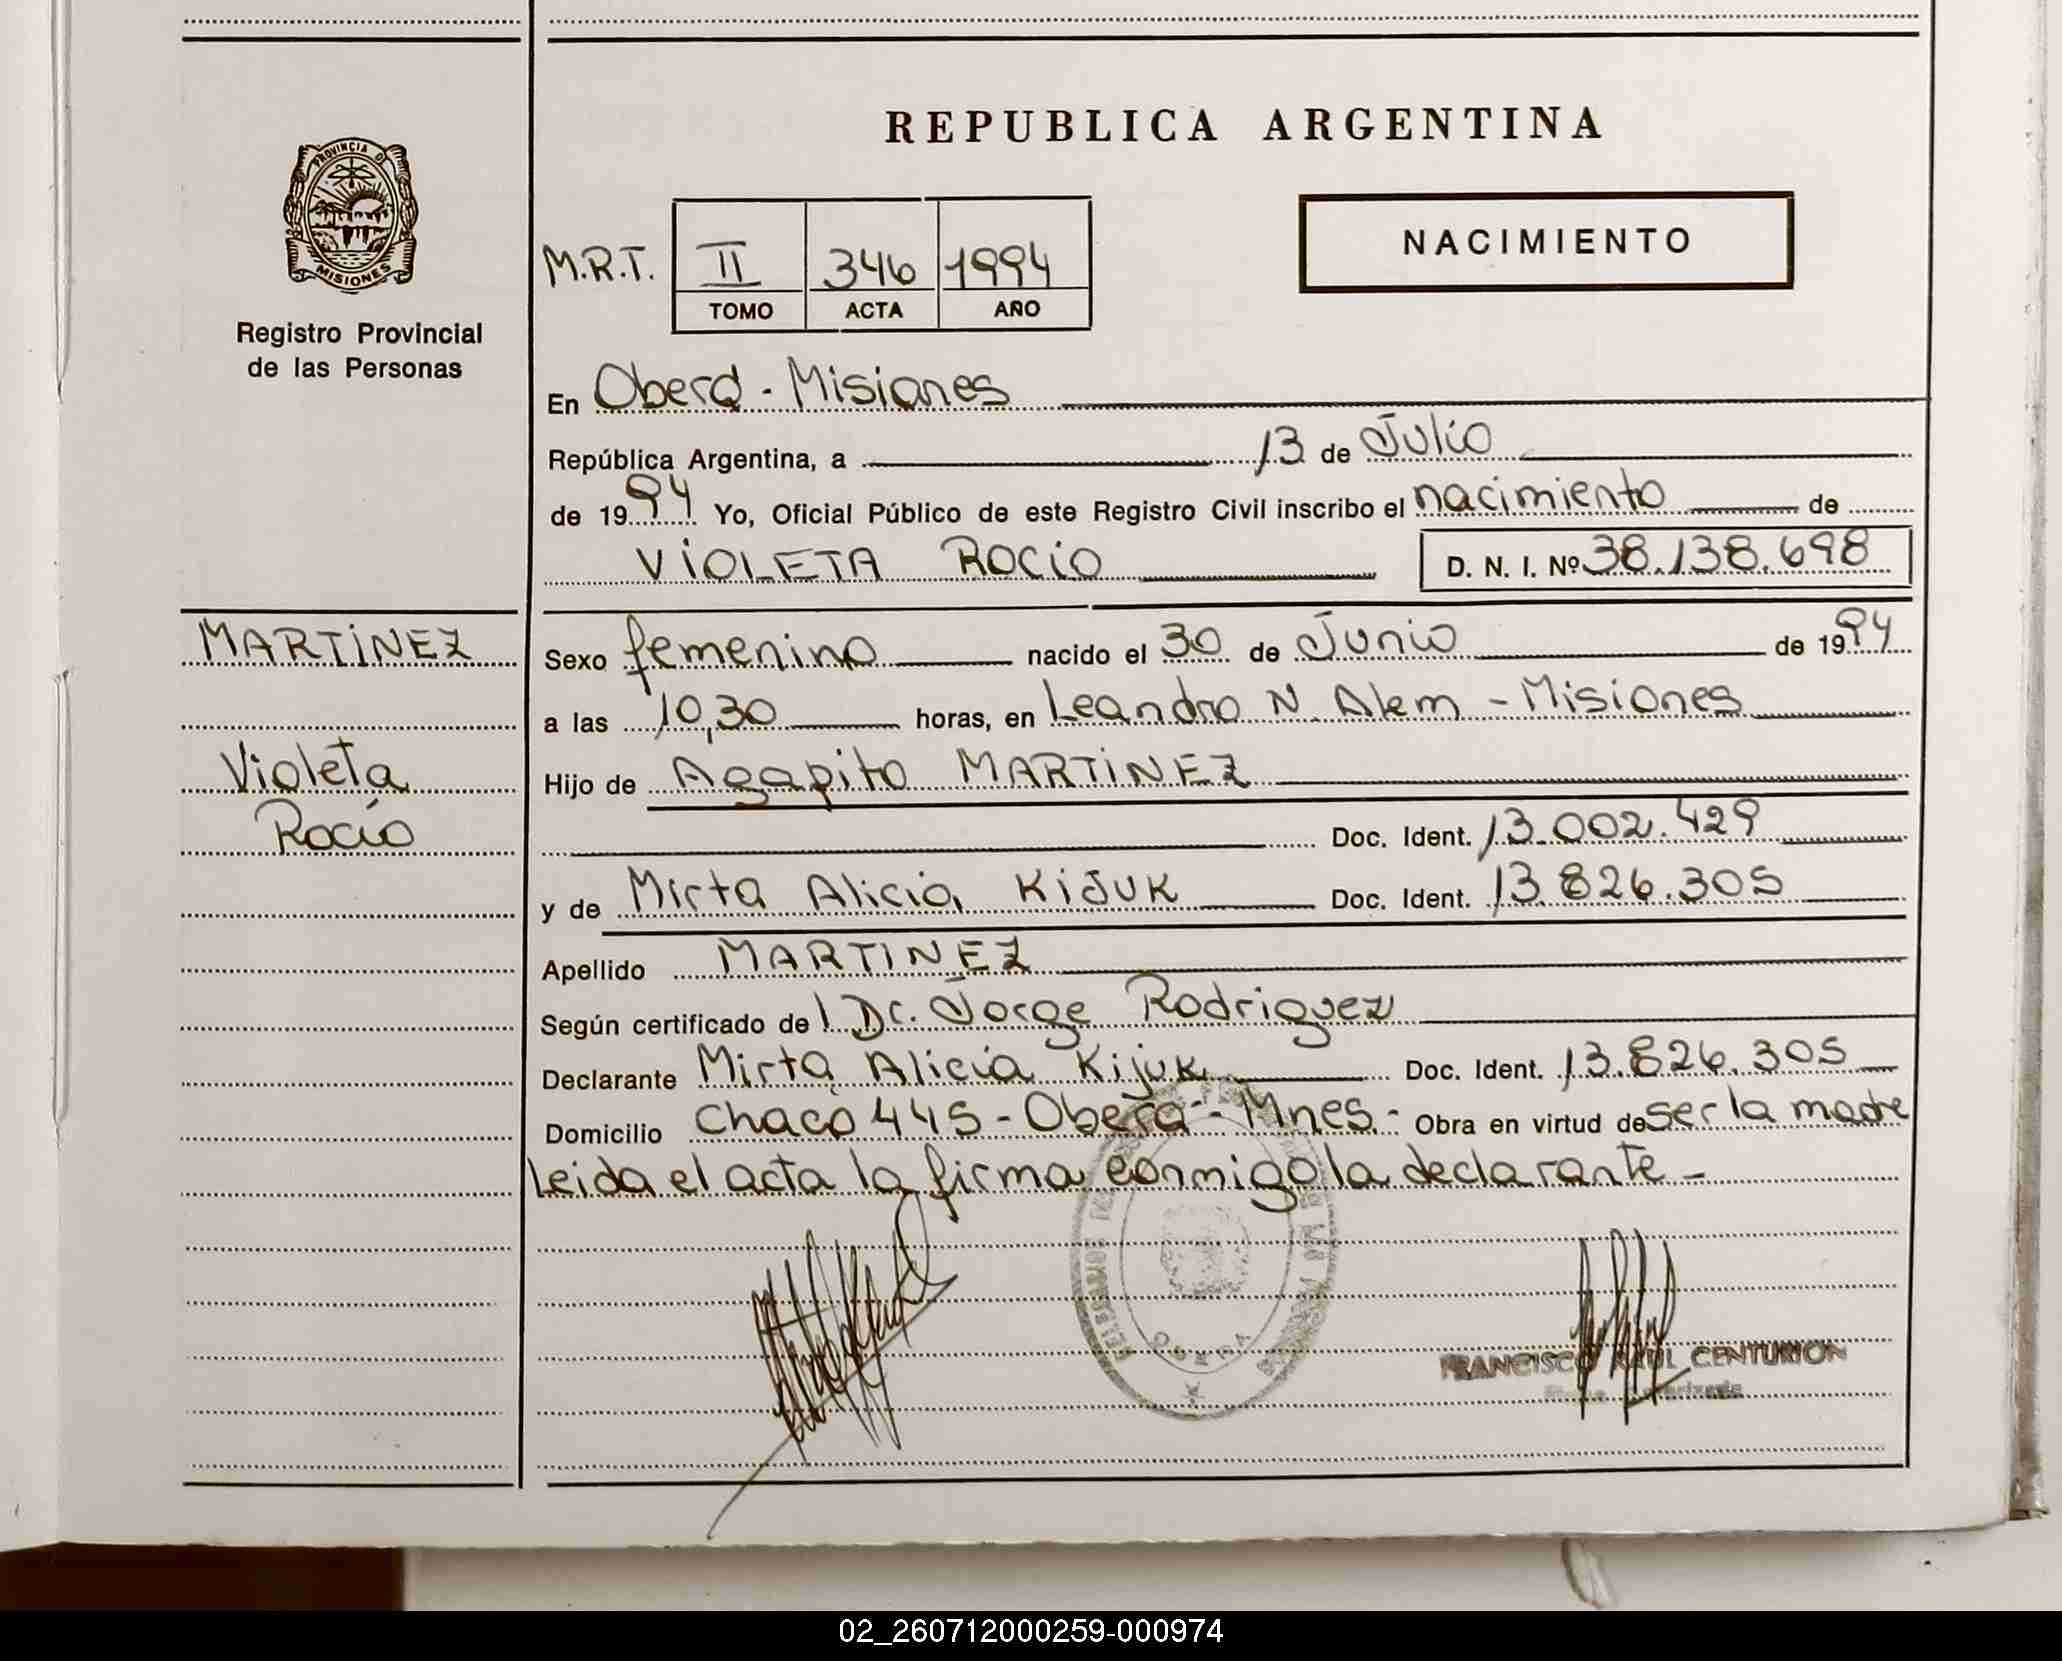 REPUBLICA ARGENTINA
PROVINCIA DE
MISIONES
Registro Provincial
de las Personas
NACIMIENTO
M.R.T. II 346 1994
TOMO ACTA AÑO
En Oberá - Misiones
República Argentina, a 13 de Julio
de 1994 Yo, Oficial Público de este Registro Civil inscribo el nacimiento de
VIOLETA ROCIO D. N. I. Nº 38.138.698
MARTINEZ
Violeta
Rocío
Sexo femenino nacido el 30 de Junio de 1994
a las 10,30 horas, en Leandro N. Alem - Misiones
Hijo de Agapito MARTINEZ
Doc. Ident. 13.002.429
y de Mirta Alicia KIJUK Doc. Ident. 13.826.305
Apellido MARTINEZ
Según certificado del Dr. Jorge Rodriguez
Declarante Mirta Alicia Kijuk Doc. Ident. 13.826.305
Domicilio Chaco 445 - Oberá - Mnes.- Obra en virtud de ser la madre
Leida el acta la firma conmigo la declarante -
OBERA
FRANCISCO RAUL CENTURION
02_260712000259-000974